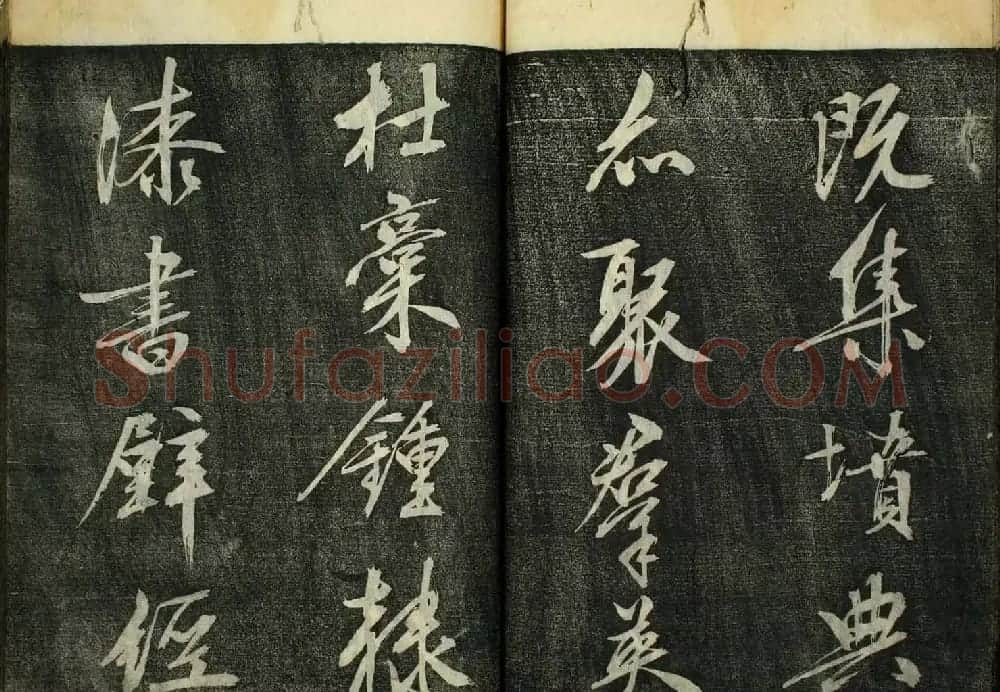 既集墳典
亦聚羣英
杜稾鍾隸
漆書壁經
Shufaziliao.COM